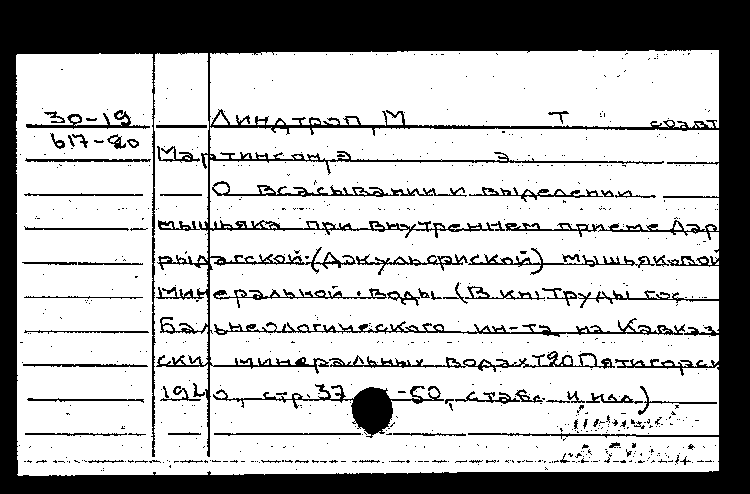 30-19 Линдтроп, М Т соавт
617-20 Мартинсон, э э.
О всасывании и выделении
мышьяка при внутреннем приеме Дар
рыдагской (Джульфинской) мышьяковой
минеральной воды (В кн: Труды гос
Бальнеологического ин-та на Кавказ
ских минеральных водах т 20 Пятигорск
1940, стр. 37 -50, с табл. и илл)